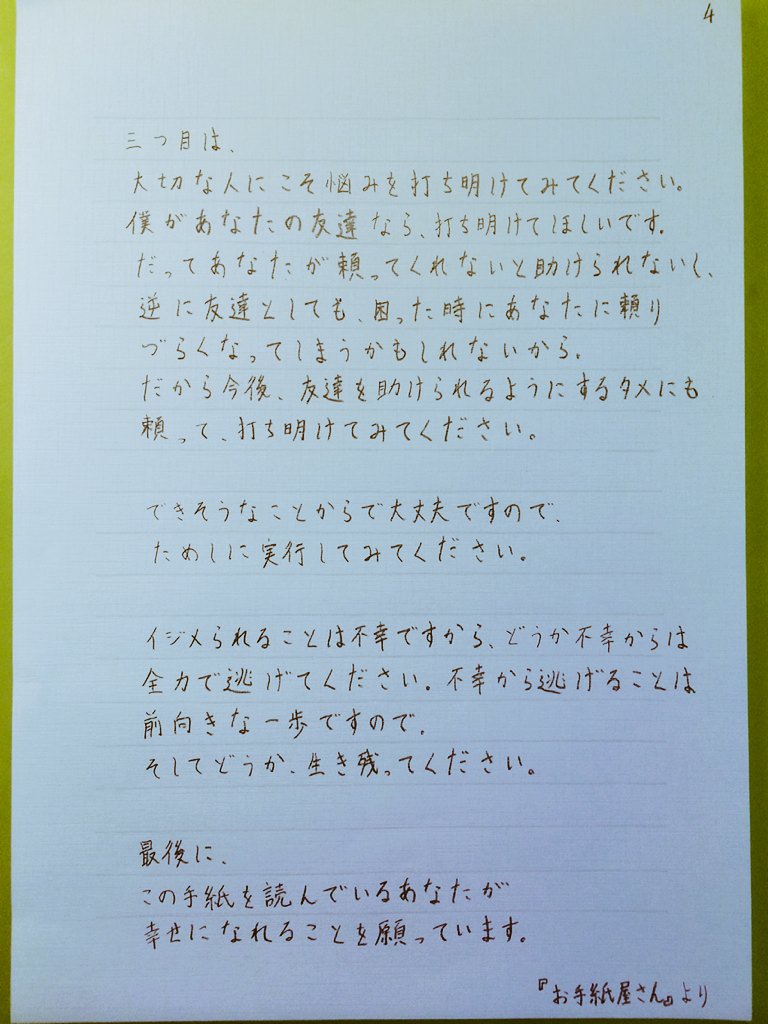 4
三つ目は、
大切な人にこそ悩みを打ち明けてみてください。
僕があなたの友達なら、打ち明けてほしいです。
だってあなたが頼ってくれないと助けられないし、
逆に友達としても、困った時にあなたに頼り
づらくなってしまうかもしれないから。
だから今後、友達を助けられるようにするタメにも
頼って、打ち明けてみてください。
できそうなことからで大丈夫ですので、
ためしに実行してみてください。
イジメられることは不幸ですから、どうか不幸からは
全力で逃げてください。不幸から逃げることは
前向きな一歩ですので。
そしてどうか、生き残ってください。
最後に、
この手紙を読んでいるあなたが
幸せになれることを願っています。
『お手紙屋さん』より